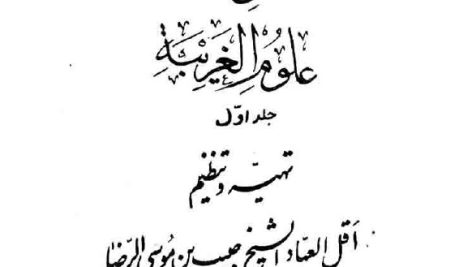 علوم الغریبة
جلد اوّل
تهیه و تنظیم
اقل العباد الشیخ حبیب بن موسی الرّضا